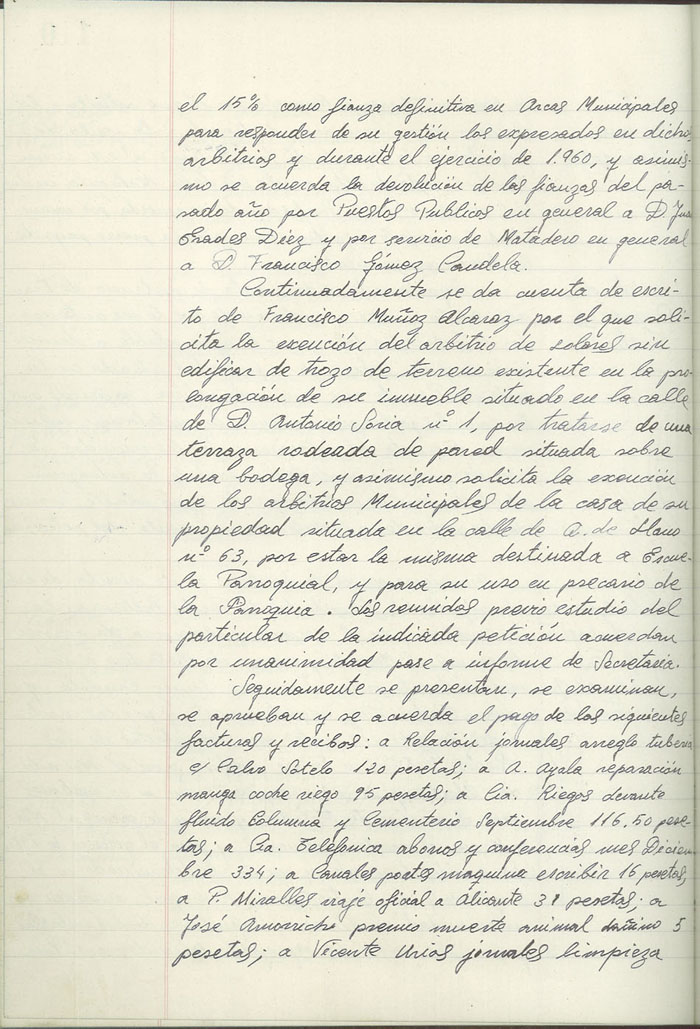 el 15% como fianza definitiva en Arcas Municipales
para responder de su gestión los expresados en dichos
arbitrios y durante el ejercicio de 1.960, y asimis-
mo se acuerda la devolución de las fianzas del pa-
sado año por Puestos Publicos en general a D.
Prades Diéz y por servicio de Matadero en general
a D. Francisco Gómez Candela.
Continuadamente se da cuenta de escri-
to de Francisco Muñoz Alcaraz por el que soli-
cita la exención del arbitrio de solares sin
edificar de trozo de terreno existente en la pro-
longación de su inmueble situado en la calle
de D. Antonio Soria nº 1, por tratarse de una
terraza rodeada de pared situada sobre
una bodega, y asimismo solicita la exención
de los arbitrios Municipales de la casa de su
propiedad situada en la calle de A. de
nº 63, por estar la misma destinada a Escue-
la Parroquial, y para su uso en precario de
la Parroquia. Los reunidos previo estudio del
particular de la indicada petición acuerdan
por unanimidad pase a informe de Secretaria.
Seguidamente se presentan, se examinan,
se aprueban y se acuerda el pago de las siguientes
facturas y recibos: a Relación jornales arreglo tuberia
c/ Calvo Sotelo 120 pesetas; a A. Ayala reparación
manga coche riego 95 pesetas; a Cia. Riegos Levante
fluido Columna y Cementerio Septiembre 116.50 pese-
tas; a Cia. Telefónica abonos y conferencias mes Diciem
bre 334; a Canales portes maquina escribir 16 pesetas;
a P. Miralles viaje oficial a Alicante pesetas; a
José premio muerte animal dañino 5
pesetas; a Vicente Urios jornales limpieza